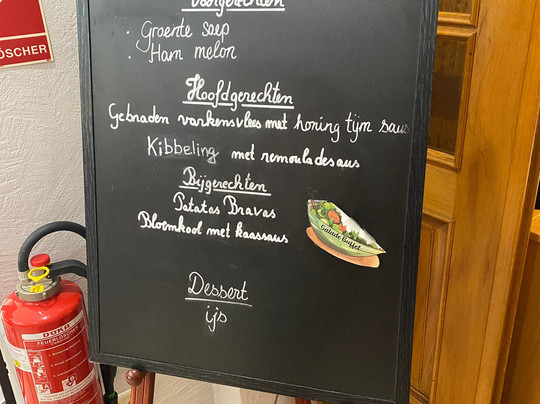 Voorgerechten
LÖSCHER
• Groente soep
• Ham melon
Hoofdgerechten
Gebraden varkensvlees met honing tijm saus
Kibbeling met remouladesaus
Bijgerechten
Patatas Bravas
Bloemkool met kaassaus
Salade Buffet
Dessert
ijs
FEUERLÖSCHER